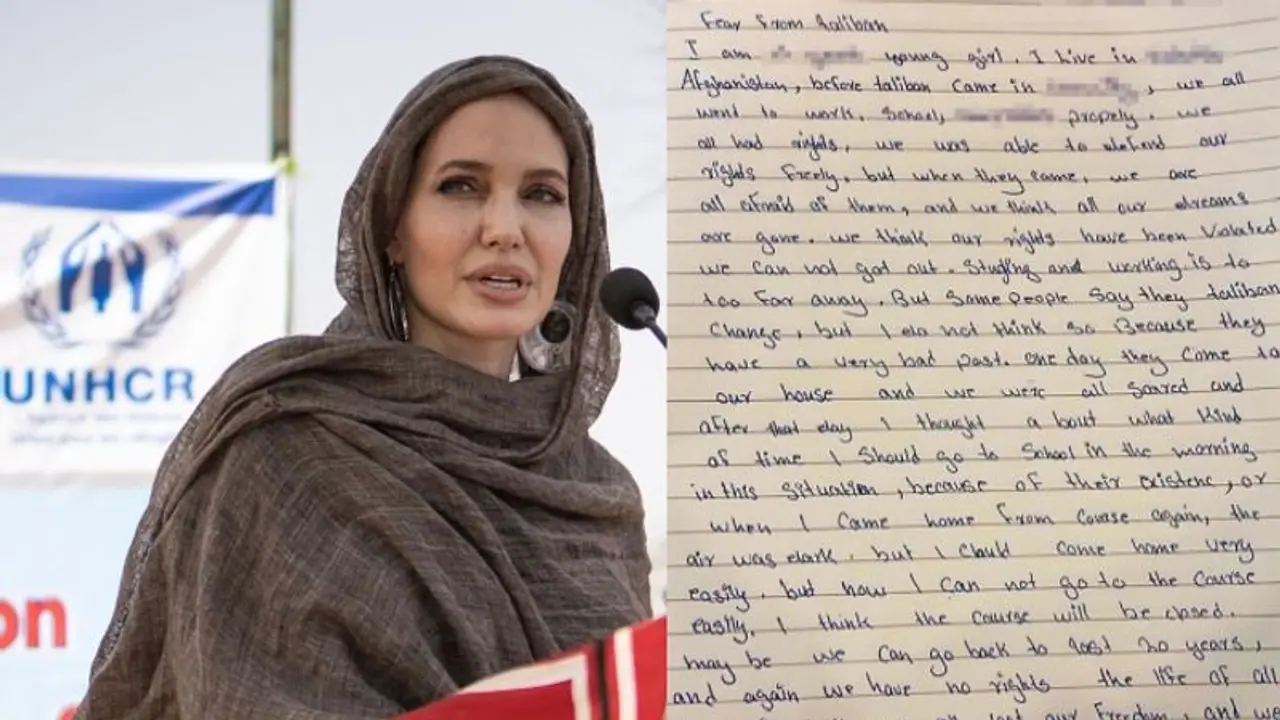 UNHCR
on
Fear From Taliban
I am young girl. I live in
Afghanistan, before taliban came in , we all
went to work, School, propely. we
all had rights, we was able to defend our
rights freely. but when they came, we are
all afraid of them, and we think all our dreams
are gone. we think our rights have been Violated
we can not got out. Studing and working is to
too far away. But Some people Say they taliban
Change, but I do not think so Because they
have a very bad past. one day they Come to
our house and we were all Scared and
after that day I thought a bout what Kind
of time I Should go to School in the morning
in this Situation, because of their existenc, or
when I Came home from Course again, the
air was dark. but I Could Come home very
easily. but now I Can not go to the Course
easily. I think the Course will be closed.
may be we Can go back to last 20 years,
and again we have no rights the life of all
our Freedom, and we